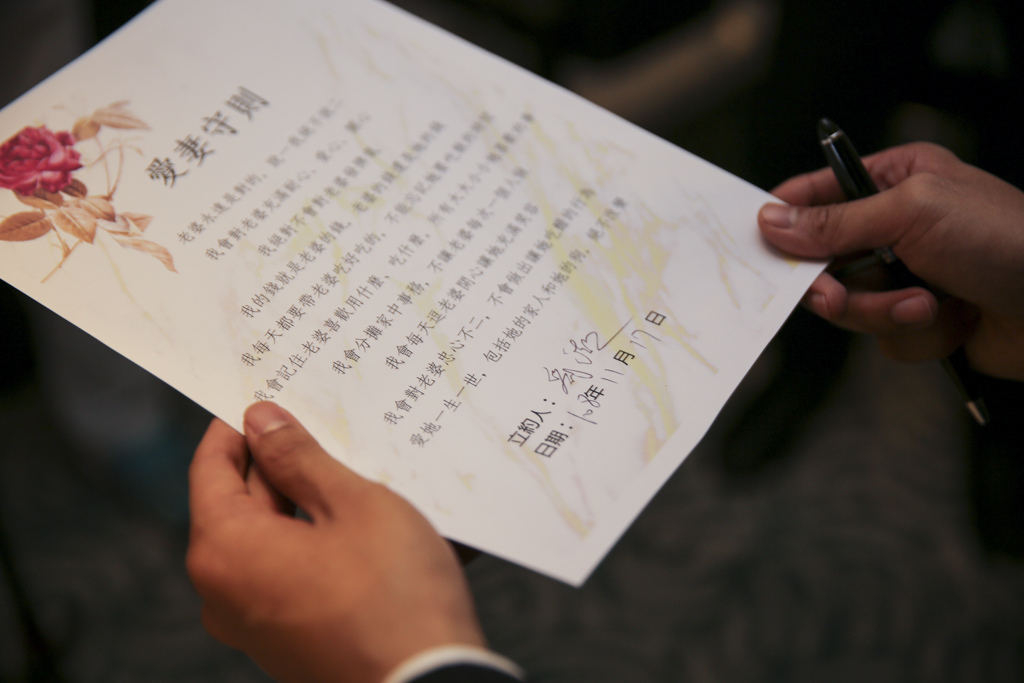 愛妻守則
老婆永遠是對的，說一是絕不說二
我會對老婆充滿耐心、愛心、關心
我絕對不會對老婆發脾氣
我的錢就是老婆的錢，老婆的錢還是她的錢
我每天都要帶老婆吃好吃的，不能忘記
我會記住老婆喜歡用什麼、吃什麼，所有大大小小
我會分攤家中事務，不讓老婆每次一個人做
我會每天逗老婆開心讓她充滿笑容
我會對老婆忠心不二，不會做出讓她吃醋的行為
愛她一生一世，包括她的家人和她的
立約人：
日期：108年11月17日